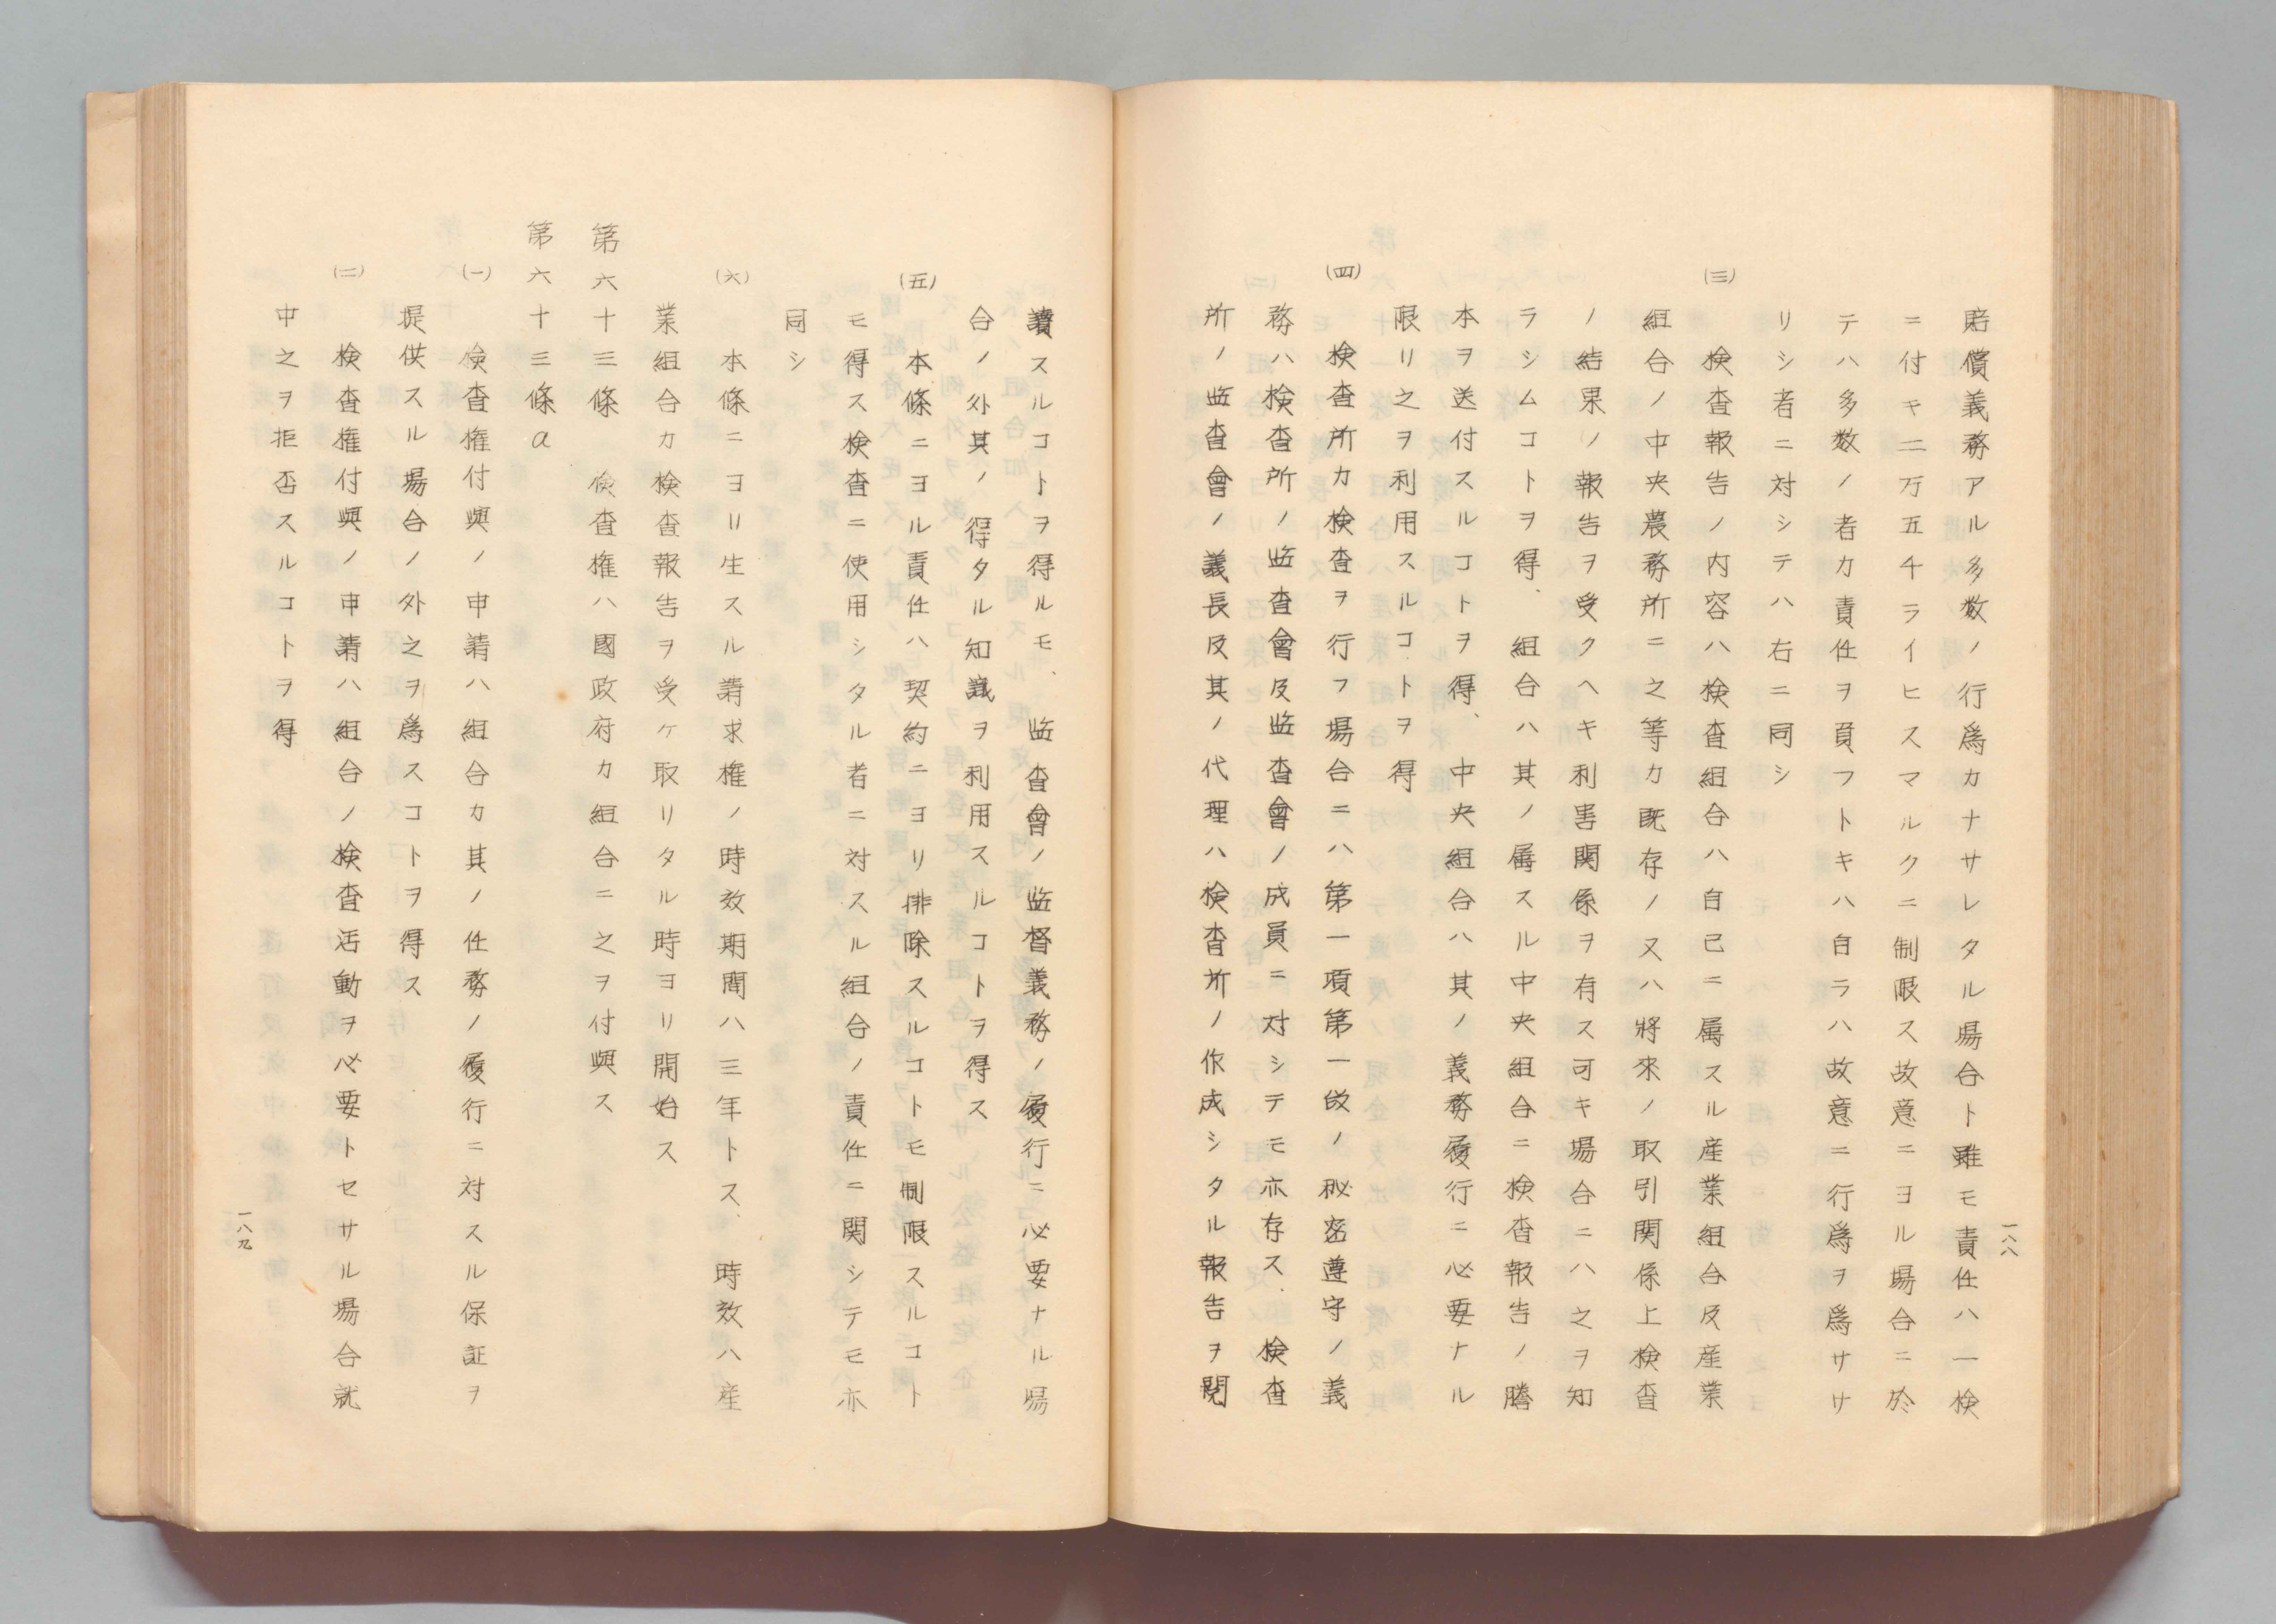 一八八
賠償義務アル多数ノ行爲カナサレタル場合ト雖モ責任ハ一検
ニ付キ二万五千ライヒスマルクニ制限ス故意ニヨル場合ニ於
テハ多数ノ者カ責任ヲ負フトキハ自ラハ故意ニ行爲ヲ爲サヽ
リシ者ニ対シテハ右ニ同シ
(三) 検査報告ノ内容ハ検査組合ハ自己ニ属スル産業組合及産業
組合ノ中央農務所ニ之等カ既存ノ又ハ將來ノ取引関係上検査
ノ結果ノ報告ヲ受クヘキ利害関係ヲ有ス可キ場合ニハ之ヲ知
ラシムコトヲ得、組合ハ其ノ属スル中央組合ニ検査報告ノ謄
本ヲ送付スルコトヲ得、中央組合ハ其ノ義務履行ニ必要ナル
限リ之ヲ利用スルコトヲ得
(四) 検査所カ検査ヲ行フ場合ニハ第一項第一段ノ秘密遵守ノ義
務ハ検査所ノ監査會及監査會ノ成員ニ対シテモ亦存ス、検査
所ノ監査會ノ議長及其ノ代理ハ検査所ノ作成シタル報告ヲ閲
讀スルコトヲ得ルモ、監査會ノ監督義務ノ履行ニ必要ナル場
合ノ外其ノ得タル知識ヲ利用スルコトヲ得ス
(五) 本條ニヨル責任ハ契約ニヨリ排除スルコトモ制限スルコト
モ得ス検査ニ使用シタル者ニ対スル組合ノ責任ニ関シテモ亦
同シ
(六) 本條ニヨリ生スル請求権ノ時效期間ハ三年トス、時效ハ産
業組合カ検査報告ヲ受ケ取リタル時ヨリ開始ス
第六十三條 検査権ハ國政府カ組合ニ之ヲ付與ス
第六十三條a
(一) 検査権付與ノ申請ハ組合カ其ノ任務ノ履行ニ対スル保証ヲ
提供スル場合ノ外之ヲ爲スコトヲ得ス
(二) 検査権付與ノ申請ハ組合ノ検査活動ヲ必要トセサル場合就
中之ヲ拒否スルコトヲ得
一八九